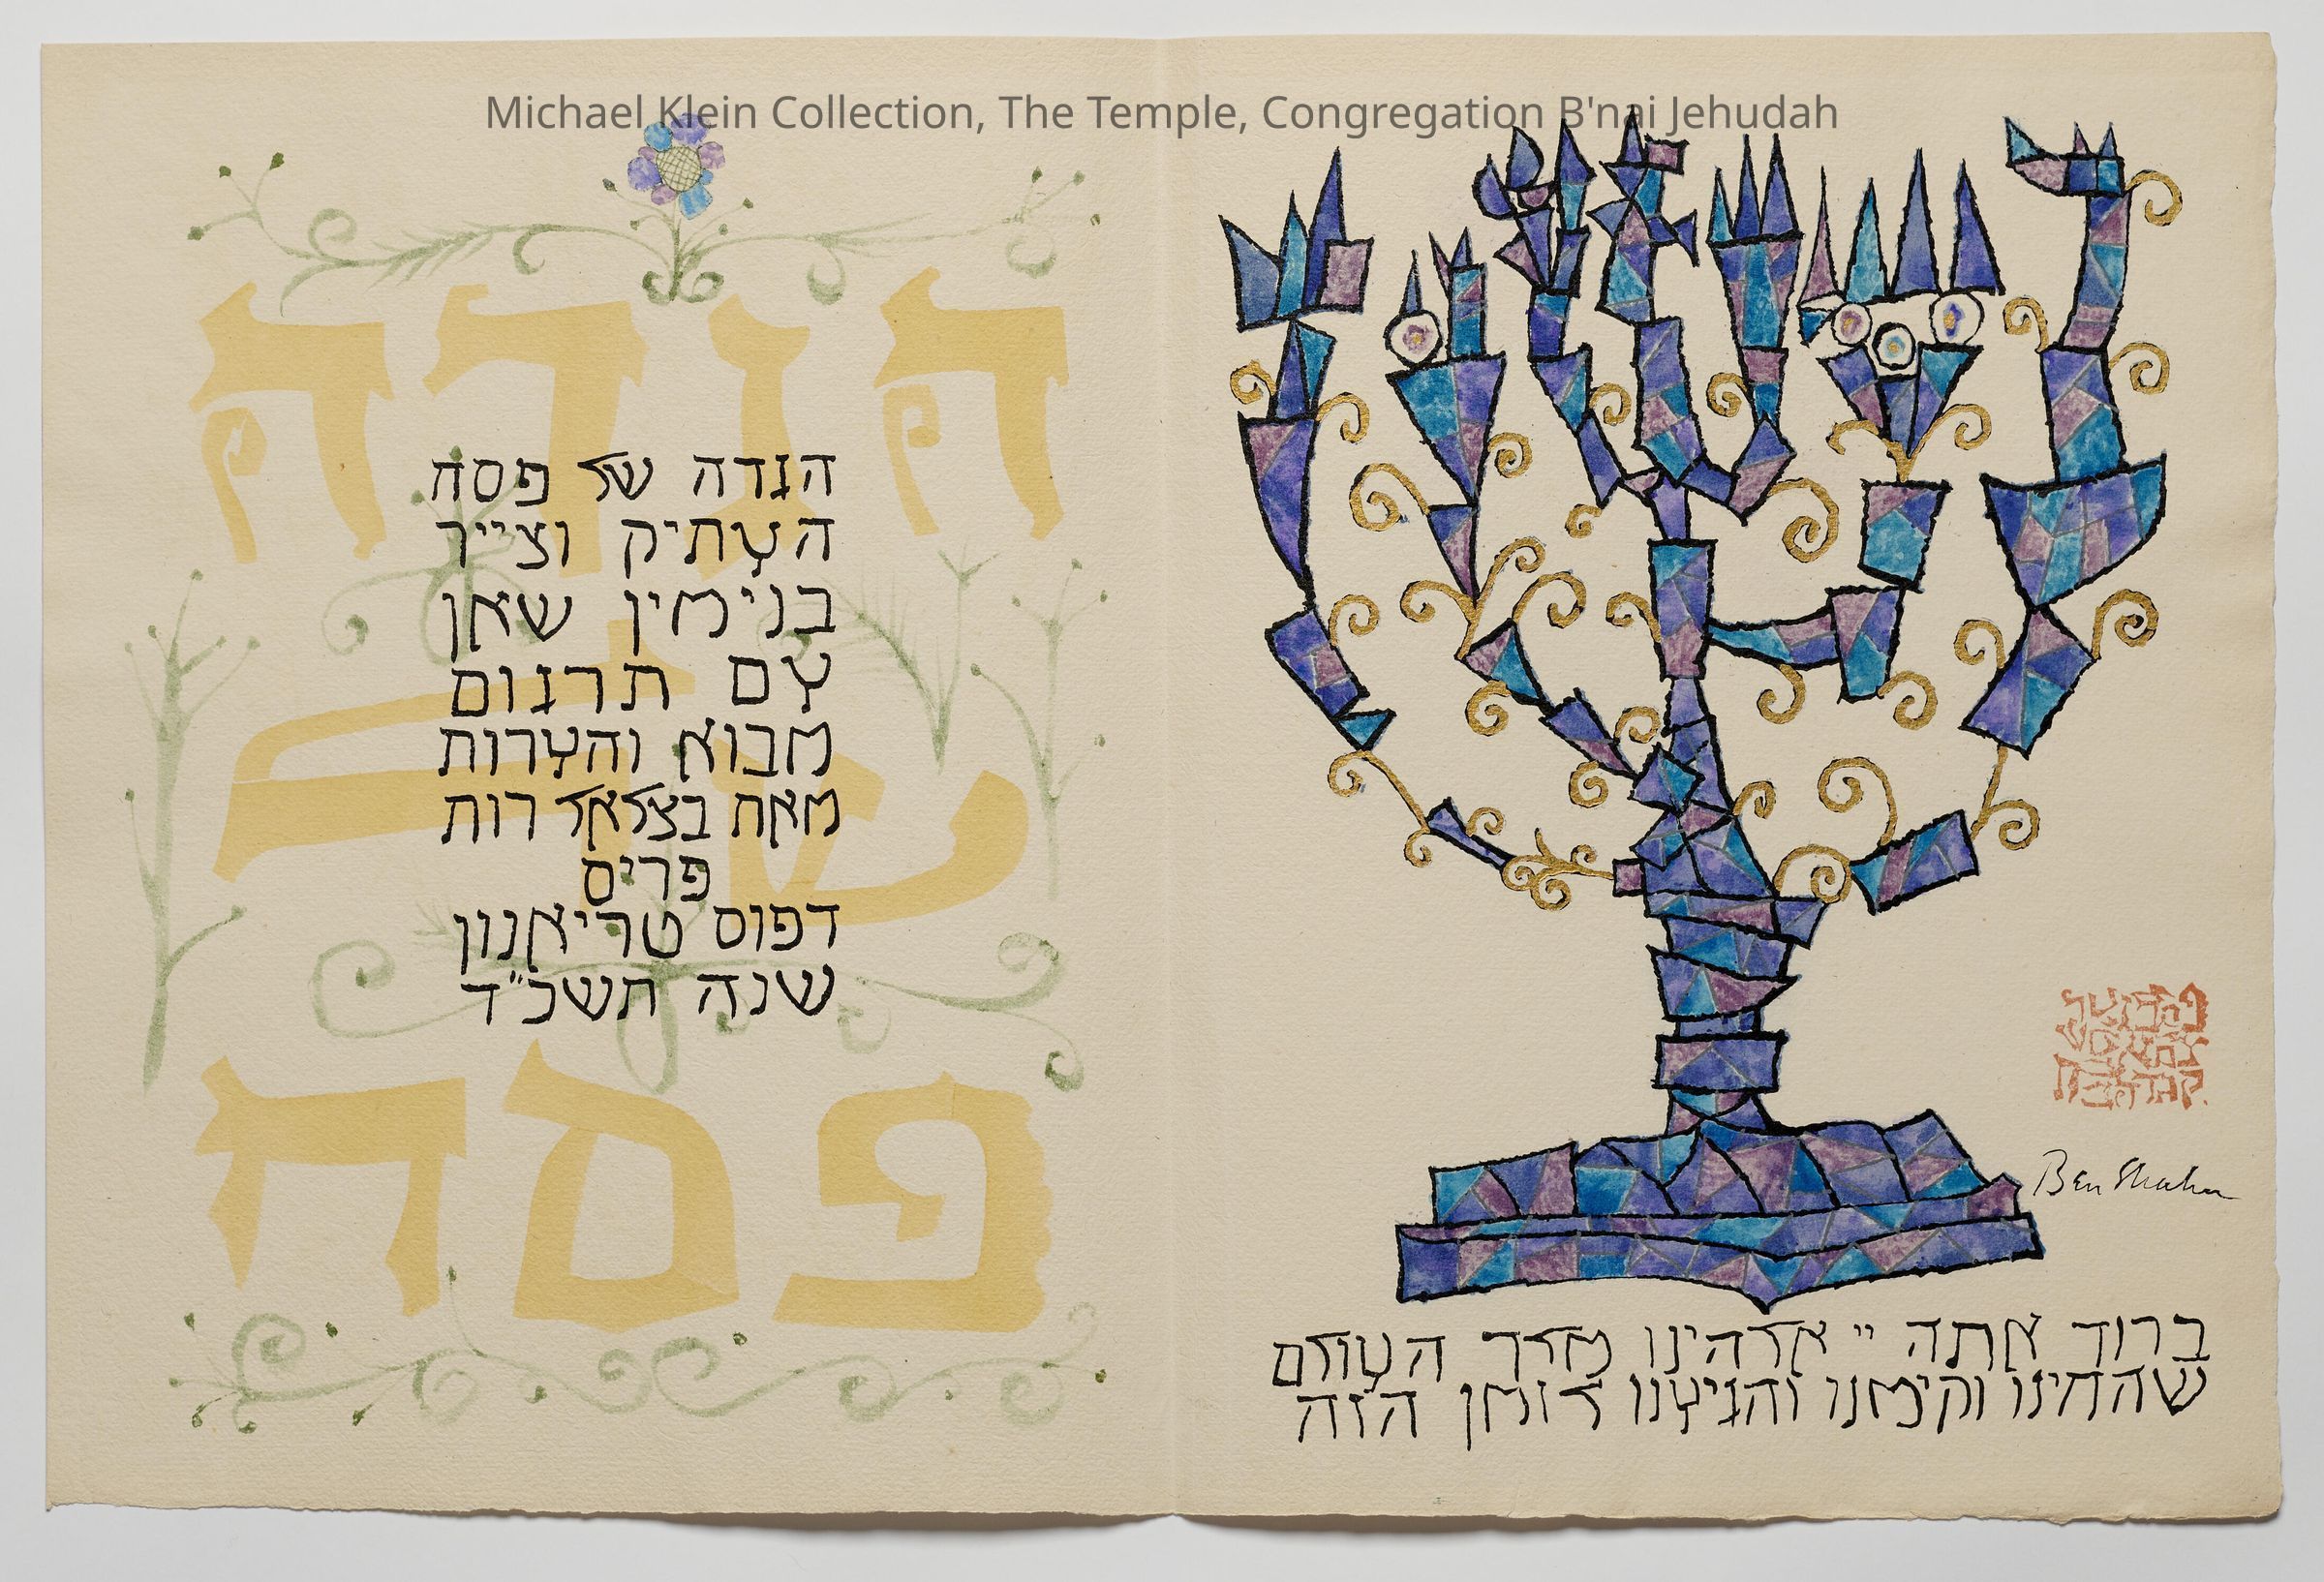 Michael Klein Collection, The Temple, Congregation B'nai Jehudah
הגדה
של
פסח
הגדה של פסח
העתיק וצייר
בנימין שאן
עם תרגום
מבוא והערות
מאת בצלאל רות
פרים
דפוס טריאנון
שנה תשכ״ד
Ben Shahn
ברוך אתה יי אלהינו מלך העולם
שהחינו וקימנו והגיענו לזמן הזה